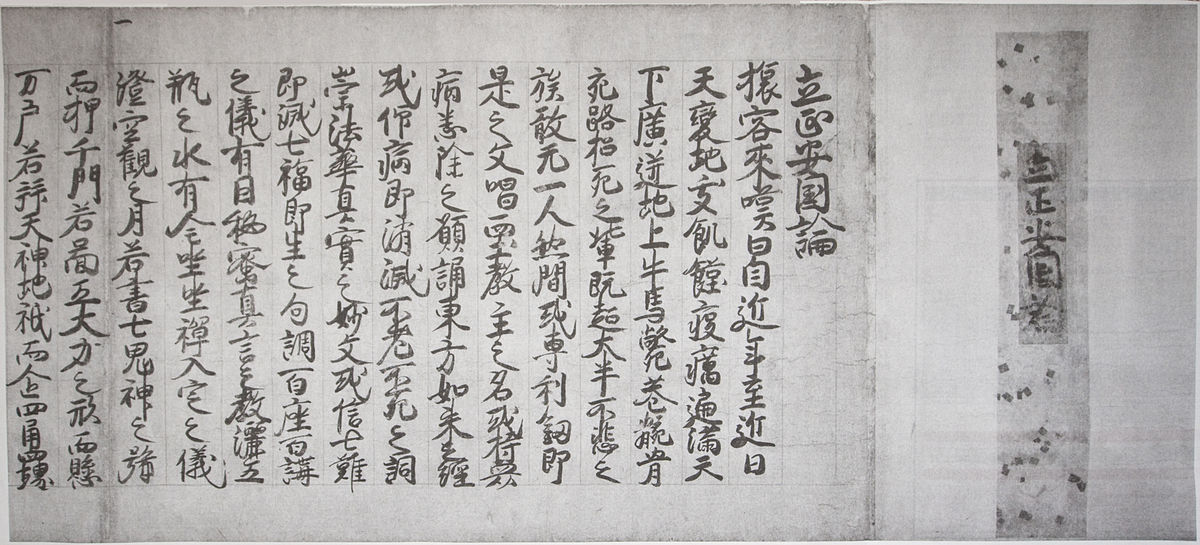 立正安国論
立正安国論
旅客來嘆曰自近年至近日
天變地夭飢饉疫癘遍滿天
下廣迸地上牛馬斃巷骸骨
充路招死之輩既超大半不悲之
族敢无一人然間或専利釼即
是之文唱西土教主之名或持衆
病悉除之願誦東方如来之經
或仰病即消滅不老不死之詞
崇法華真實之妙文或信七難
即滅七福即生之句調百座百講
之儀有因秘密真言之教灑五
瓶之水有全坐禪入定之儀
澄空觀之月若書七鬼神之號
而押千門若啚五大力之形而懸
万戸若拜天神地祇而企四角四堺
一